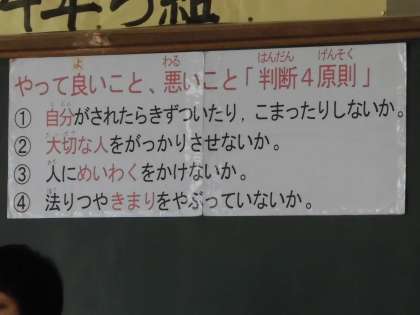 4年5組
やって良いこと、悪いこと「判断4原則」
① 自分がされたらきずついたり，こまったりしないか。
② 大切な人をがっかりさせないか。
③ 人にめいわくをかけないか。
④ 法りつやきまりをやぶっていないか。